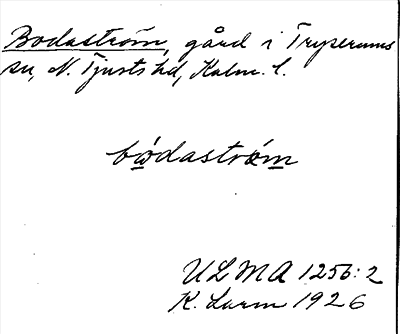 Bodaström, gård i Tryserums
sn, N. Tjusts hd, Kalm. l.
bódaström
ULMA 1256:2
K. Larm 1926